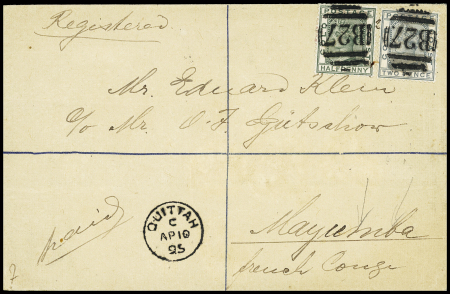 Registered
POSTAGE
HALFPENNY
TWO PENCE
B27
B27
Mr. Eduard Klein
c/o Mr. O. F. Gütschow
paid
QUITTAH
C
AP 10
95
Mayumba
french Congo